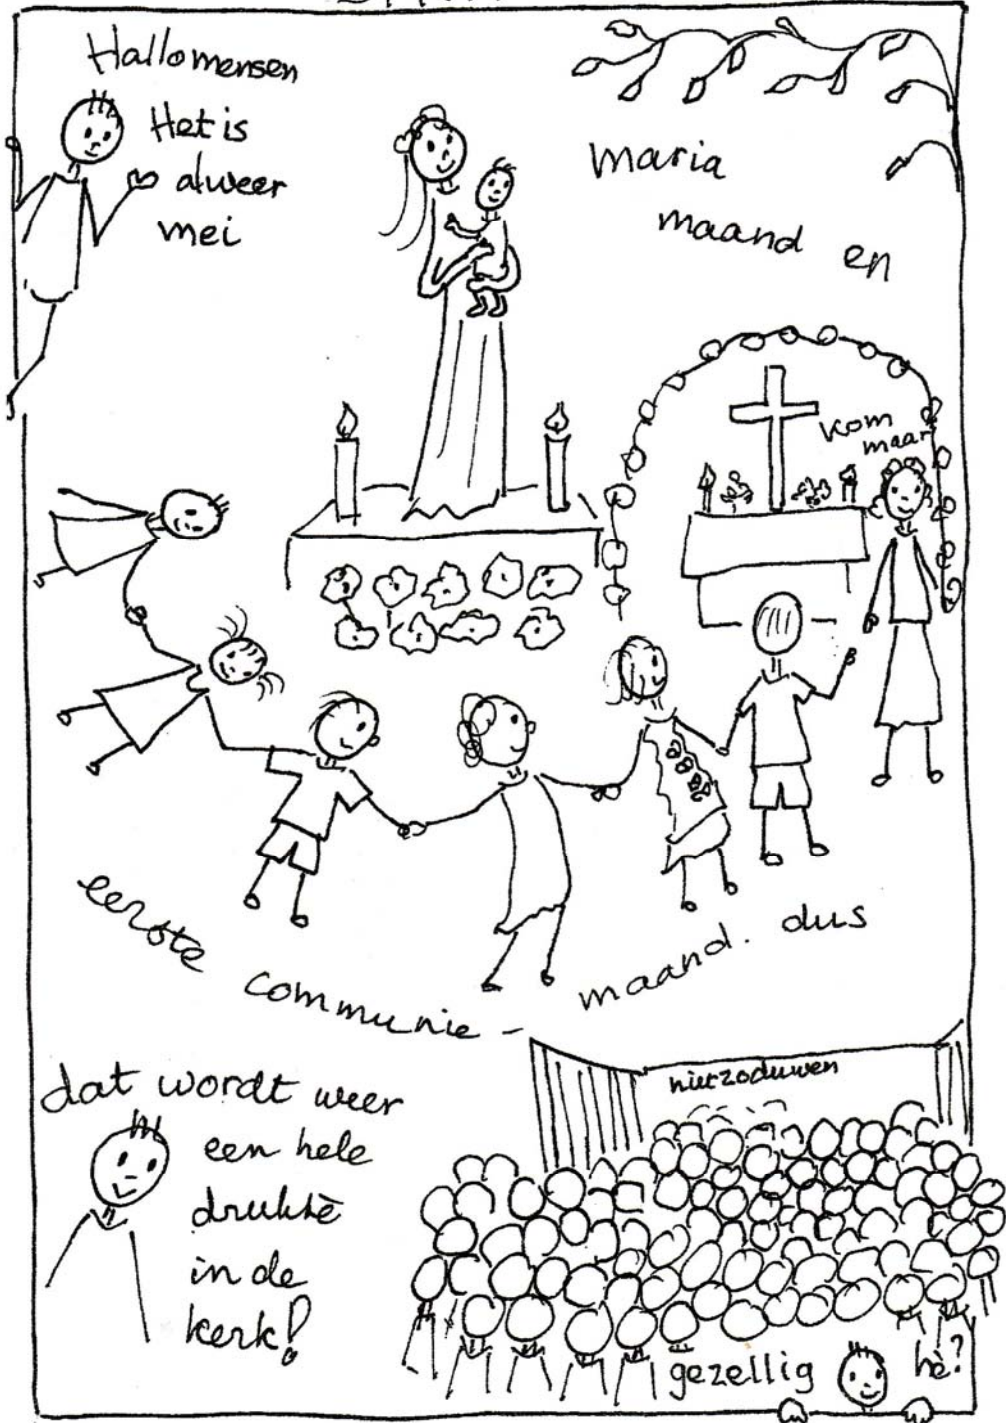 Hallo mensen
Het is
alweer
mei
maria
maand en
kom
maar
eerste communie-maand. dus
dat wordt weer
een hele
drukte
in de
kerk!
niet zo duwen
gezellig hè?